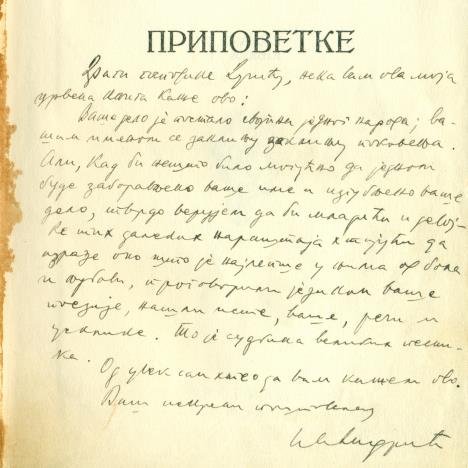 ПРИПОВЕТКЕ
Драги господине Дучићу, нека вам ова моја
црвена књига каже ово:
Ваше дело је постало својина једног народа; ва-
шим именом се заклињу поколења.
Али, кад би нешто било могућно да једном
буде заборављено ваше име и изгубљено ваше
дело, тврдо верујем да би младићи и девој-
ке тих далеких нараштаја хтејући да
изразе оно што је најлепше у њима од бола
и љубави, проговорили језиком ваше
поезије, нашли исте, ваше, речи и
усклике. То је судбина великих песни-
ка.
Од увек сам хтео да вам кажем ово.
Ваш искрени поштовалац